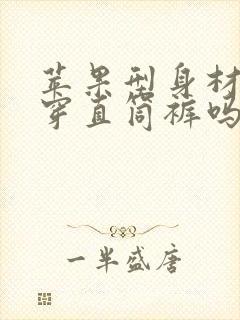 苹果型身材
穿直筒裤吗
一半盛唐